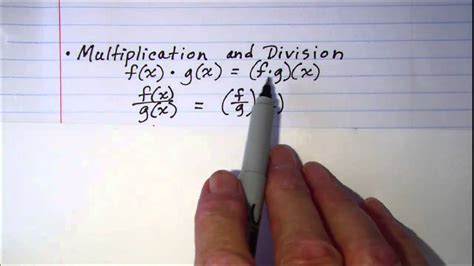 • Multiplication and Division
f(x) · g(x) = (f·g)(x)
f(x)/g(x) = (f/g)( )